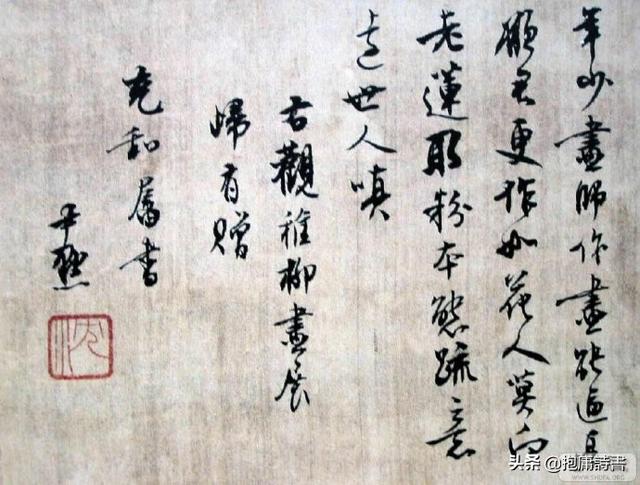 年少畫師作畫能逼真
願君更作如花人莫向
老蓮取粉本態疏意
遠世人嗔
右觀稚柳畫展
歸有贈
充和屬書
尹默
沈
头条 @抱庸詩書
WWW.SHUFA.ORG